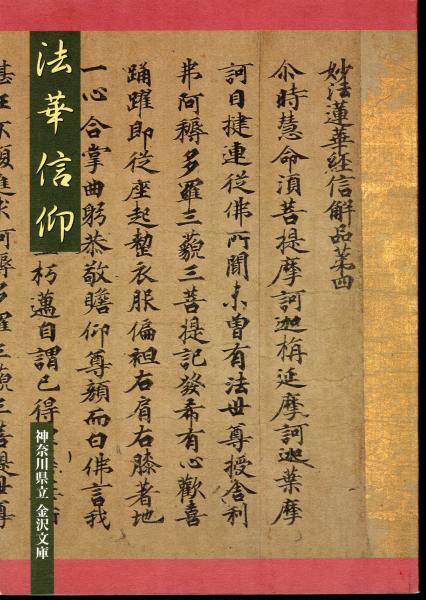 法華信仰
神奈川県立 金沢文庫
妙法蓮華経信解品第四
尒時慧命須菩提摩訶迦栴延摩訶迦葉摩
訶目揵連從佛所聞未曾有法世尊授舎利
弗阿耨多羅三藐三菩提記發希有心歡喜
踊躍即從座起整衣服偏袒右肩右膝著地
一心合掌曲躬恭敬瞻仰尊顔而白佛言我
朽邁自謂已得
任不復進求阿耨多羅三藐三菩提世尊